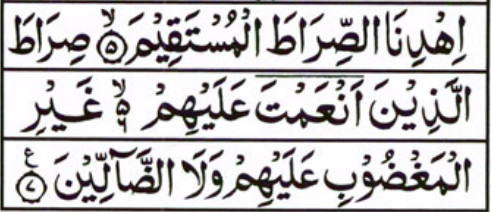 اِهْدِنَا الصِّرَاطَ الْمُسْتَقِيْمَ ۙ﴿۵﴾ صِرَاطَ
الَّذِيْنَ اَنْعَمْتَ عَلَيْهِمْ ۙ۬ۦ۶ غَيْرِ
الْمَغْضُوْبِ عَلَيْهِمْ وَلَا الضَّآلِّيْنَ ﴿۷﴾ ع